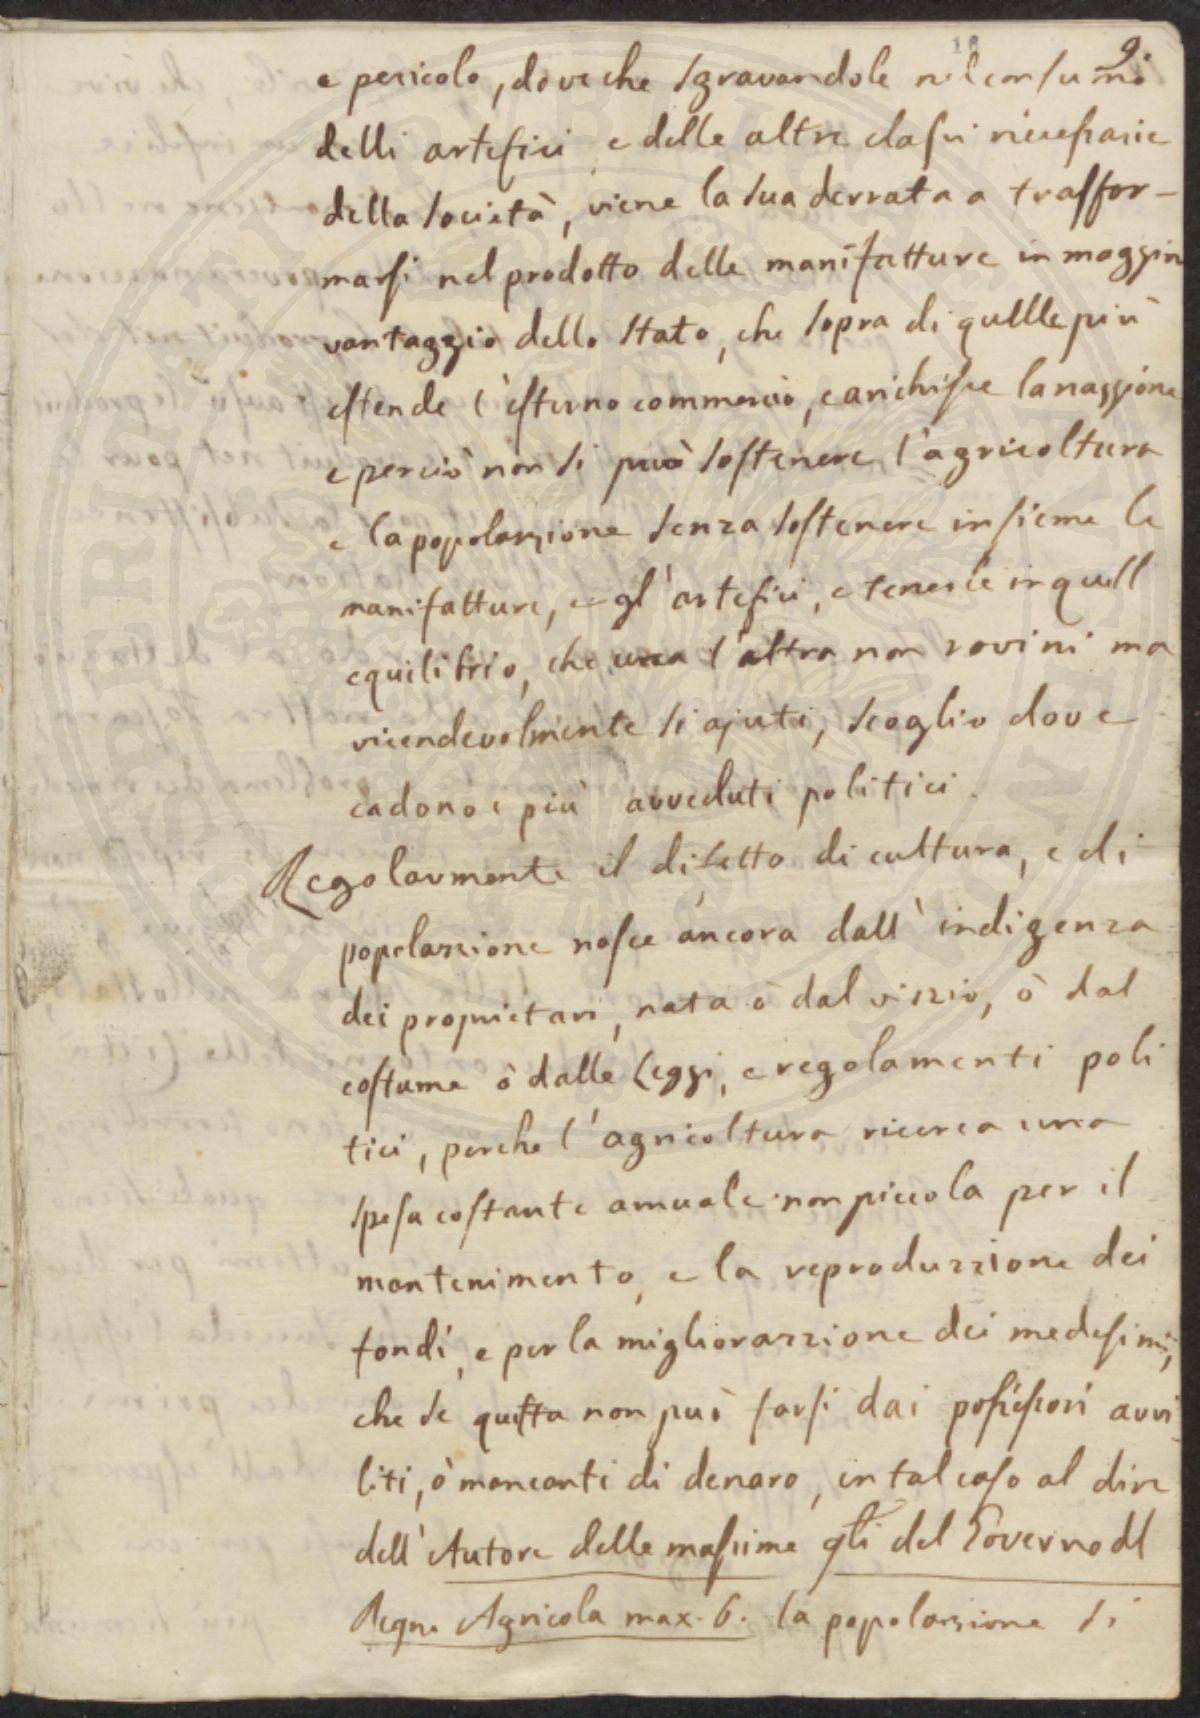 9.
e pericolo, dove che sgravandole nel consumo
delli artefici e delle altre classi necessarie
della società, viene la sua derrata a trasffor-
marsi nel prodotto delle manifatture in maggior
vantaggio dello stato, che sopra di quelle più
estende l'esterno commercio, e arichisce la nazzione
e perciò non si può sostenere l'agricoltura
e la popolazzione senza sostenere insieme le
manifatture, e gl'artefici, e tenerle in quell
equilibrio, che una l'altra non rovini ma
vicendevolmente si ajuti, scoglio dove
cadono i più avveduti politici.
Regolarmente il difetto di cultura, e di
popolazzione nasce ancora dall'indigenza
dei proprietari, nata ò dal vizzio, ò dal
costume ò dalle Leggi, e regolamenti poli
tici, perche l'agricoltura ricerca una
spesa costante annuale non piccola per il
mantenimento, e la reproduzzione dei
fondi, e per la migliorazzione dei medesimi,
che se questa non può farsi dai possessori avvi
liti, ò mancanti di denaro, in tal caso al dire
dell'Autore delle massime gli del Governo del
Regno Agricola max. 6. la popolazzione si